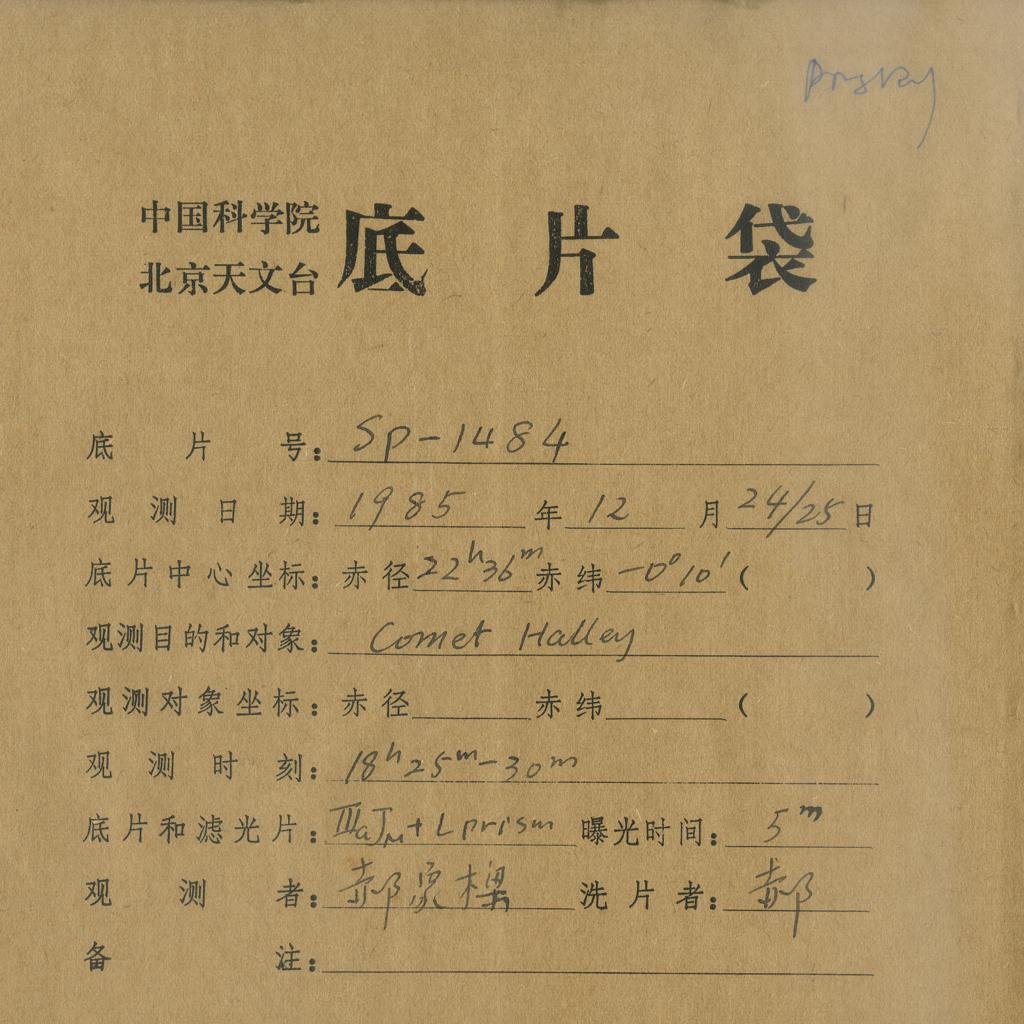 中国科学院
北京天文台 底片袋
底片号：Sp-1484
观测日期：1985年12月24/25日
底片中心坐标：赤径22h36m赤纬-0°10'（ ）
观测目的和对象：Comet Halley
观测对象坐标：赤径 赤纬 （ ）
观测时刻：18h25m-30m
底片和滤光片：IIIaJM+Lprism 曝光时间：5m
观测者：郝象樑 洗片者：郝
备注：